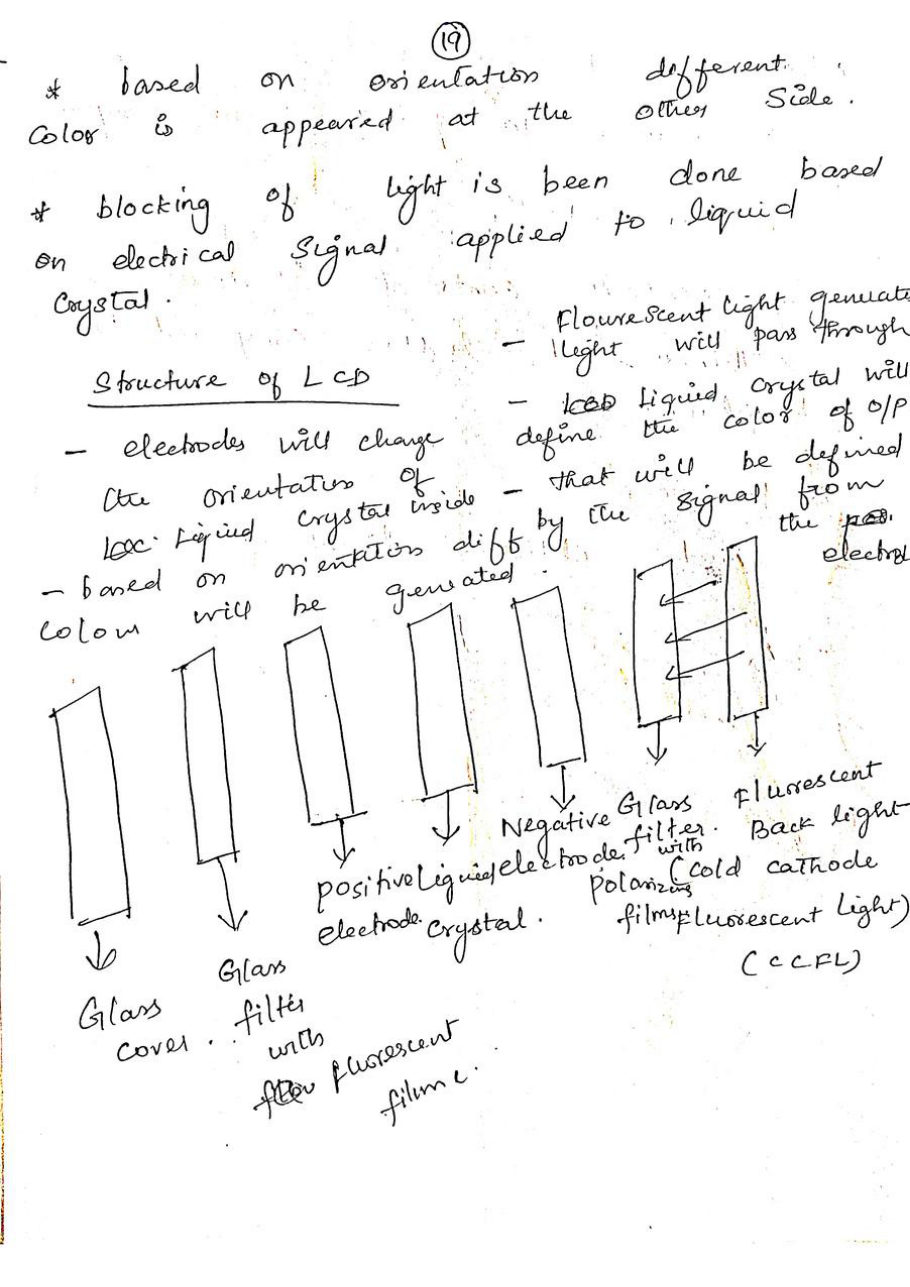 19
* based on orientation different
Color is appeared at the other Side.
* blocking of light is been done based
on electrical Signal applied to liquid
Crystal.
Structure of LCD
- electrodes will change
the orientation of
Liquid Crystal inside
- based on orientation diff
Colour will be generated.
- Flourescent light generate
light will pass through
- Liquid Crystal will
define the color of O/P
- that will be defined
by the signal from
the
Glass
cover.
Glass
filter
with
fluorescent
film
positive
electrode.
Liquid
Crystal.
Negative
electrode.
Glass
filter.
with
Polarizing
films
Flurescent
Back light
(Cold cathode
Fluorescent Light)
(CCFL)